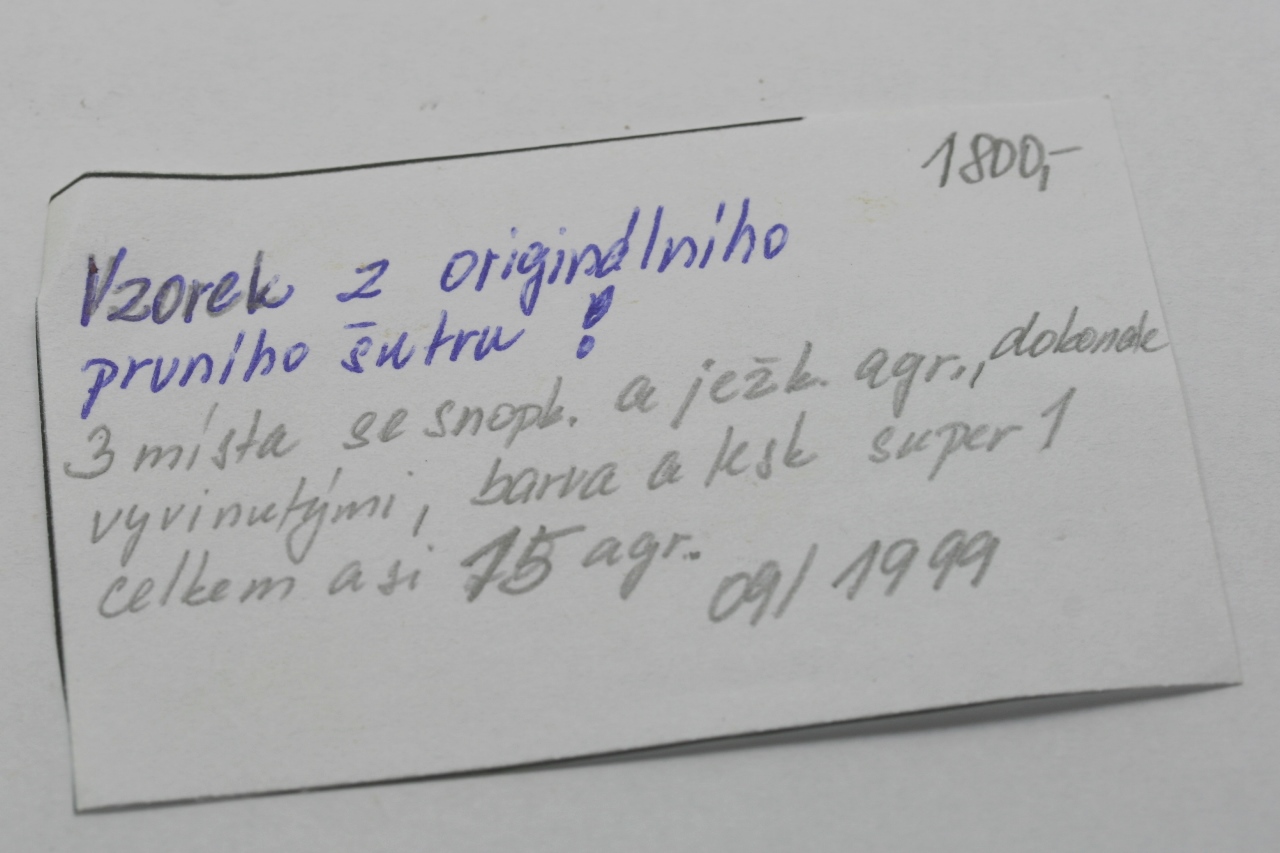 1800,-
Vzorek z originálního
prvního šutru !
3 místa se snopk. a ježk. agr., dokonale
vyvinutými, barva a lesk super 1
celkem asi 15 agr. 09/ 1999